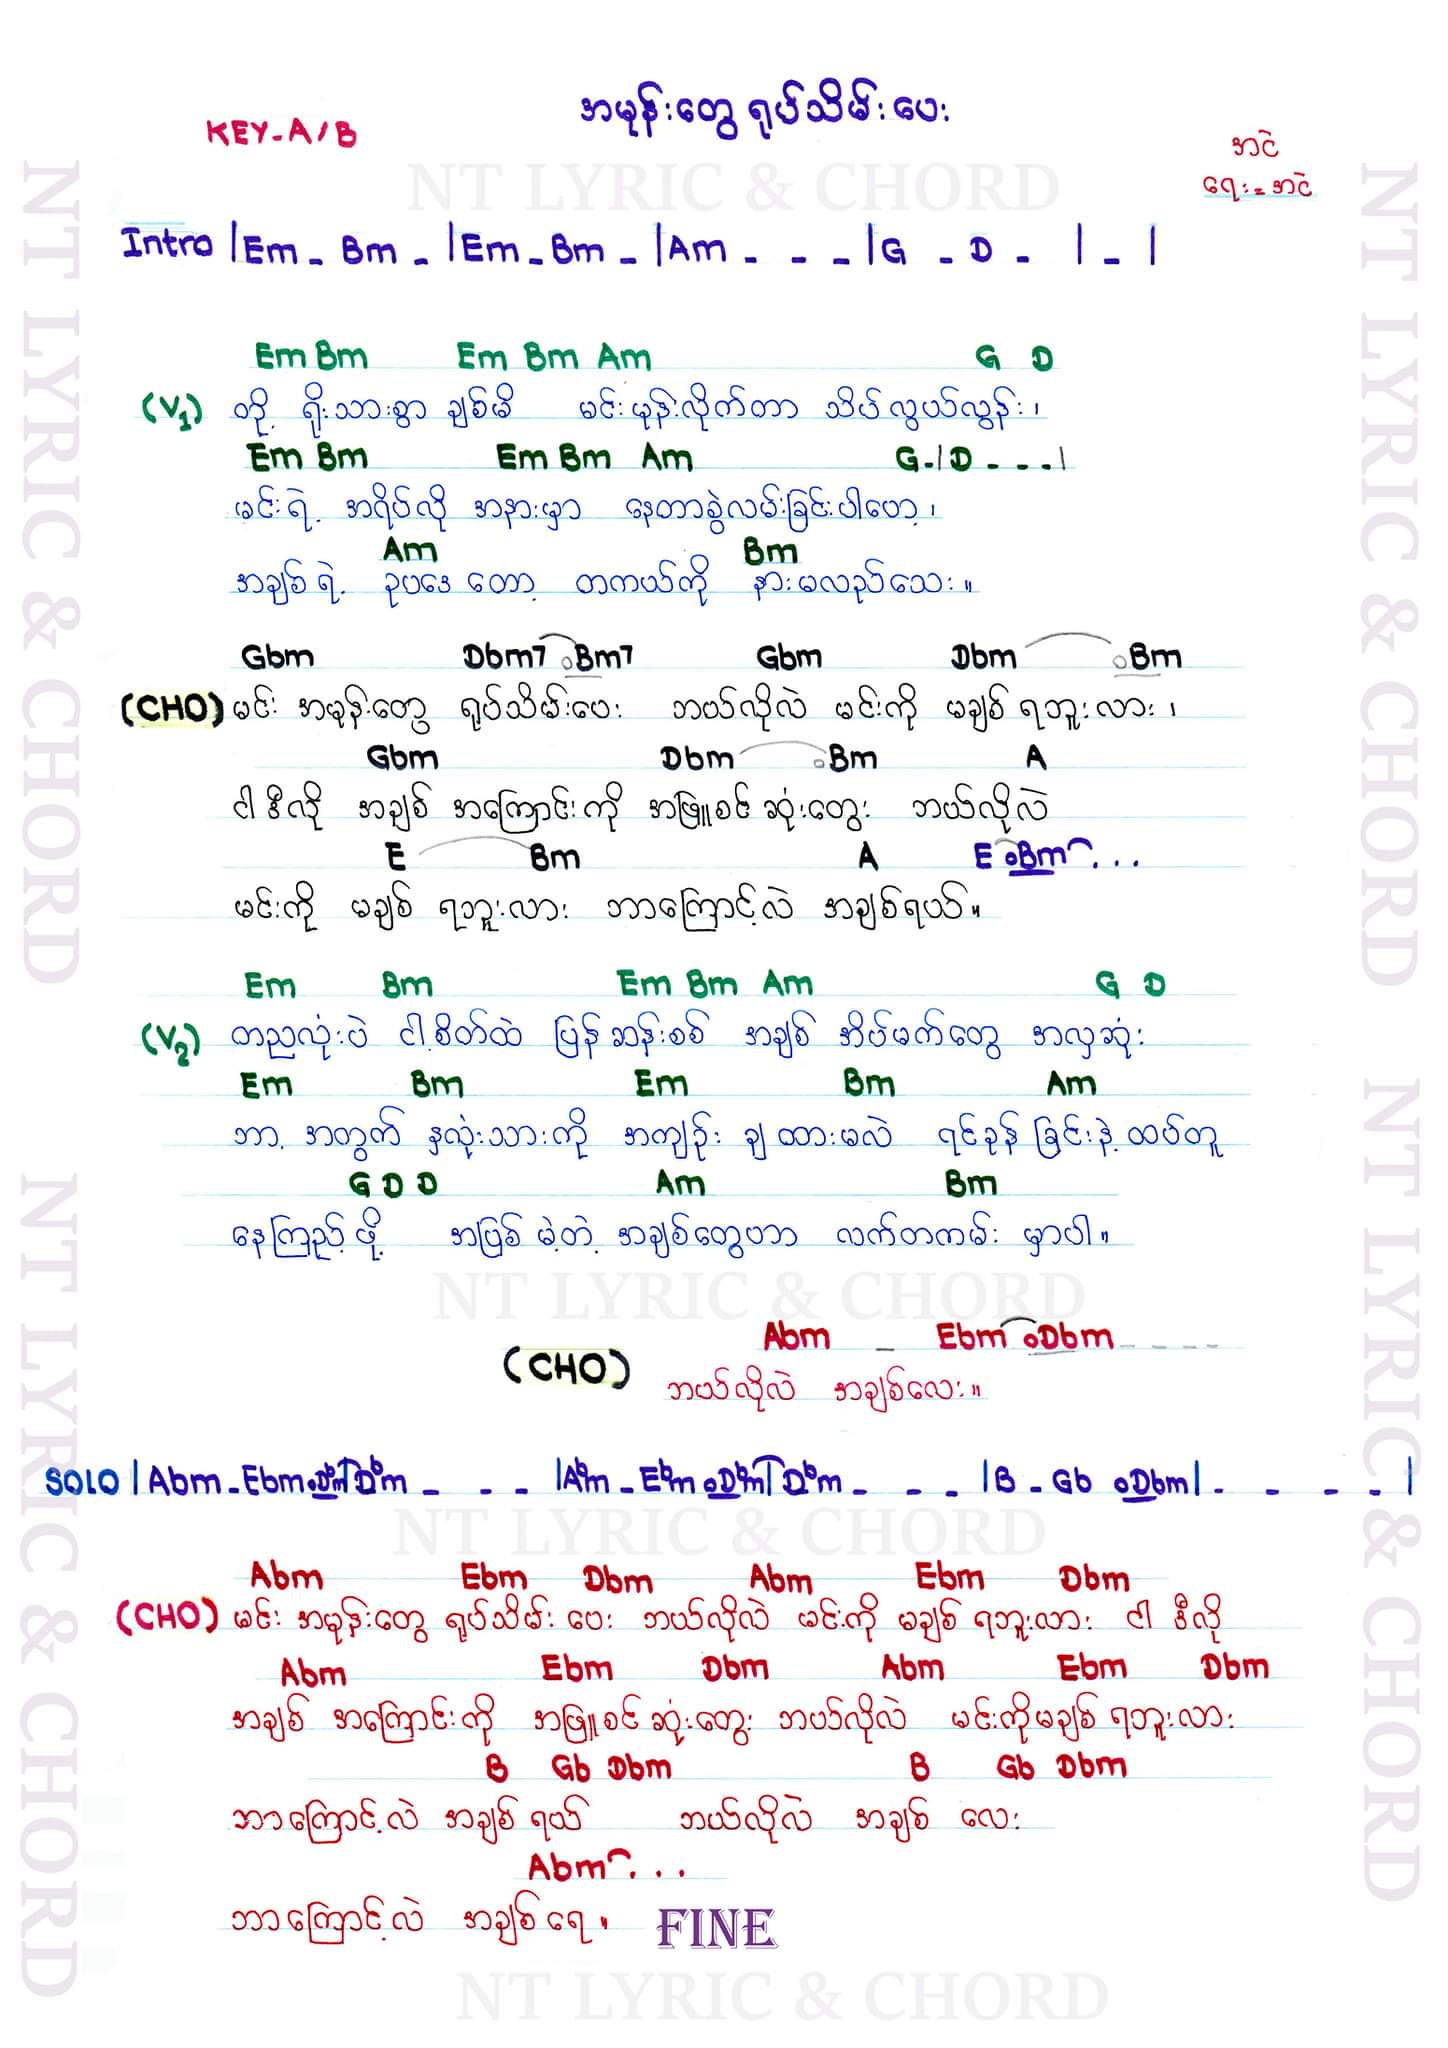 အမုန်းတွေ ရုပ်သိမ်းပေး
KEY-A/B
အငဲ
ရေး=အငဲ
NT LYRIC & CHORD
Intro |Em - Bm - |Em - Bm - |Am - - - |G - D - | - |
Em Bm Em Bm Am G D
(V1) တို့ ရိုးသားစွာ ချစ်မိ မင်းမုန်းလိုက်တာ သိပ်လွယ်လွန်း၊
Em Bm Em Bm Am G-|D - - - |
မင်းရဲ့ အရိပ်လို အနားမှာ နေတာခွဲလမ်းခြင်းပါပေါ့၊
Am Bm
အချစ်ရဲ့ ဥပဒေ တော့ တကယ်ကို နားမလည်သေး။
Gbm Dbm7 Bm7 Gbm Dbm Bm
(CHO) မင်း အမုန်းတွေ ရုပ်သိမ်းပေး ဘယ်လိုလဲ မင်းကို မချစ် ရဘူးလား ၊
Gbm Dbm Bm A
ငါ ဒီလို အချစ် အကြောင်းကို အဖြူစင် ဆုံးတွေး ဘယ်လိုလဲ
E Bm A E Bm ...
မင်းကို မချစ် ရဘူးလား ဘာကြောင့်လဲ အချစ်ရယ်။
Em Bm Em Bm Am G D
(V2) တညလုံးပဲ ငါ့စိတ်ထဲ ပြန်ဆန်းစစ် အချစ် အိပ်မက်တွေ အလှဆုံး
Em Bm Em Bm Am
ဘာ့ အတွက် နှလုံးသားကို အကျဉ်း ချ ထားမလဲ ရင်ခုန် ခြင်းနဲ့ ထပ်တူ
G D D Am Bm
နေကြည့် ဖို့ အပြစ် မဲ့တဲ့ အချစ်တွေဟာ လက်တကမ်း မှာပါ။
NT LYRIC & CHORD
Abm - Ebm Dbm - - - -
(CHO) ဘယ်လိုလဲ အချစ်လေး။
SOLO |Abm - Ebm Dbm|Dbm - - - |Abm - Ebm Dbm|Dbm - - - |B - Gb Dbm| - - - - |
NT LYRIC & CHORD
Abm Ebm Dbm Abm Ebm Dbm
(CHO) မင်း အမုန်းတွေ ရုပ်သိမ်း ပေး ဘယ်လိုလဲ မင်းကို မချစ် ရဘူးလား ငါ ဒီလို
Abm Ebm Dbm Abm Ebm Dbm
အချစ် အကြောင်းကို အဖြူစင် ဆုံးတွေး ဘယ်လိုလဲ မင်းကိုမချစ် ရဘူးလား
B Gb Dbm B Gb Dbm
ဘာကြောင့်လဲ အချစ် ရယ် ဘယ်လိုလဲ အချစ် လေး
Abm ...
ဘာကြောင့်လဲ အချစ် ရေ ။ FINE
NT LYRIC & CHORD
NT LYRIC & CHORD
NT LYRIC & CHORD
NT LYRIC & CHORD
NT LYRIC & CHORD